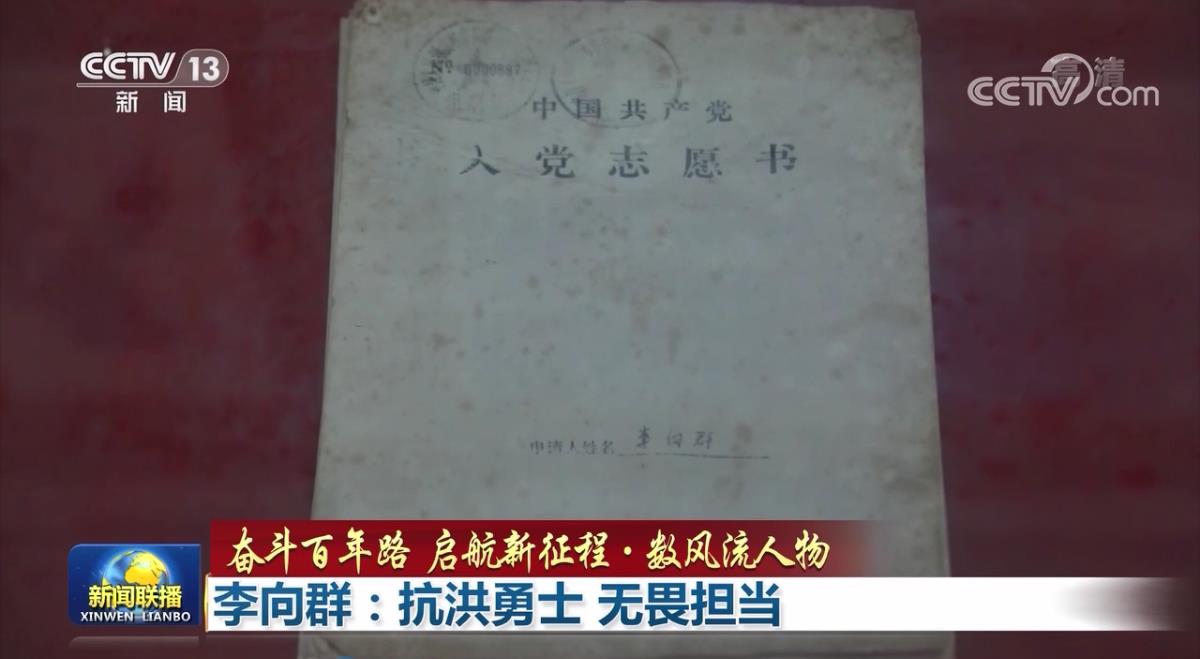 CCTV 13
新闻
高清
CCTV.com
中国共产党
入党志愿书
申请人姓名 李向群
奋斗百年路 启航新征程·数风流人物
新闻联播
XINWEN LIANBO
李向群：抗洪勇士 无畏担当